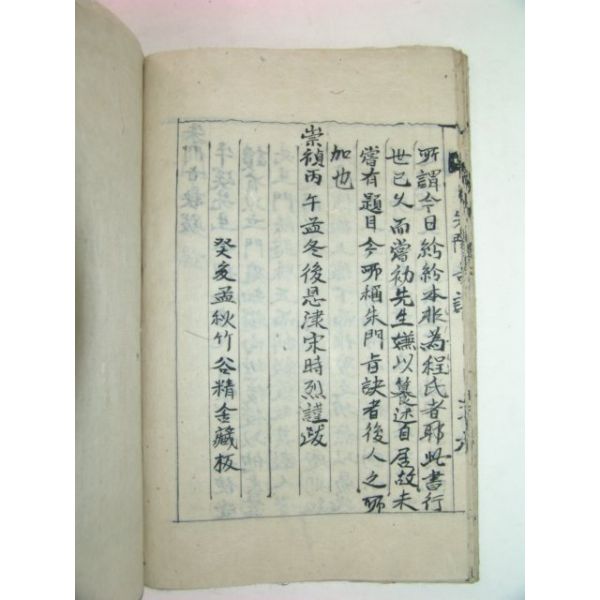 所謂今日紛紛本非為程氏者耶此書行
世已久而當初先生嫌以纂述自居故未
嘗有題目今所稱朱門旨訣者後人之所
加也
崇禎丙午孟冬後恩津宋時烈謹跋
癸亥孟秋竹谷精舍藏板